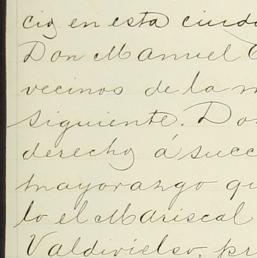 cig en esta ciuda
Don Manuel
vecinos de la m
siguiente. Do
derecho á succ
mayorazgo qu
lo el Mariscal
Valdivielso, pr